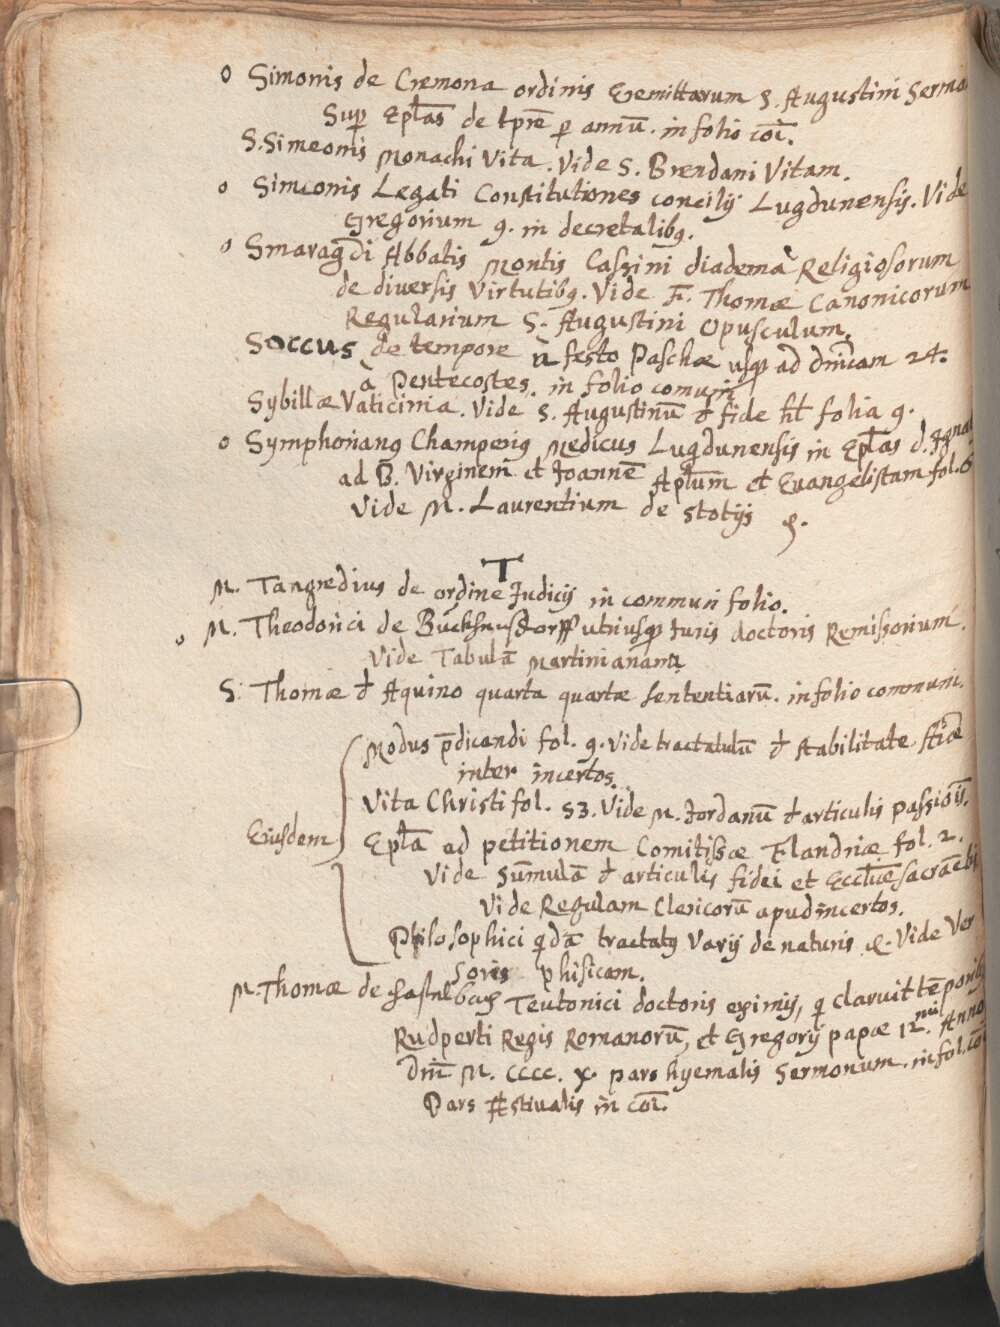 o Simonis de Cremona ordinis Eremittarum S. Augustini Sermo
Sup Eplas de tpre p annū. in folio coī.
S. Simeonis Monachi Vita. Vide S. Brendani Vitam.
o Simeonis Legati Constitutiones concilij Lugdunensis. Vide
Gregorium 9. in decretalib9.
o Smaragdi Abbatis Montis Cassini diadema Religiosorum
de diversis Virtutib9. Vide F. Thomæ Canonicorum
Regularium S. Augustini Opusculum.
Soccus de tempore à festo Paschæ usq ad dnicam 24.
à Pentecostes. in folio comuni
Sybillæ Vaticinia. Vide S. Augustinū de fide ht folia 9.
o Symphorian9 Champeri9 Medicus Lugdunensis in Eplas d. Ignat
ad B. Virginem et Joannē Aplum et Euangelistam fol. 6
Vide M. Laurentium de Stotijs &.
T
M. Tangredius de ordine Judicij in communi folio.
o M. Theodorici de utriusq Juris doctoris Remissorium.
Vide Tabulā Martinianam
S. Thomæ d Aquino quarta quartæ sententiarū. in folio communi.
Modus pdicandi fol. 9. Vide tractatulū d stabilitate
inter incertos.
Vita Christi fol. 53. Vide M. Jordanū d articulis passiōis.
Eiusdem
Epla ad petitionem Comitissæ Flandriæ fol. 2.
Vide Sūmulā d articulis fidei et
Vide Regulam Clericorū apud incertos.
Philosophici qdā tractat9 Varij de naturis &. Vide Ver
soris phisicam.
M. Thomæ de Haselbach Teutonici doctoris eximij, q claruit tēporib9
Rudperti Regis Romanorū, et Gregorij papæ 12mi. Anno
Dnī M. cccc. x. pars hyemalis Sermonum. in fol. coī
Pars Æstiualis in coī.